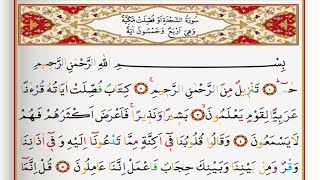 سُورَةُ السَّجْدَةِ اَوْ فُصِّلَتْ مَكِّيَّةٌ
وَهِيَ اَرْبَعٌ وَخَمْسُونَ اٰيَةً
بِسْمِ اللّٰهِ الرَّحْمٰنِ الرَّحِيمِ
حٰمٓ ۚ تَنْزِيلٌ مِنَ الرَّحْمٰنِ الرَّحِيمِ ۚ كِتَابٌ فُصِّلَتْ اٰيَاتُهُ قُرْاٰنًا
عَرَبِيًّا لِقَوْمٍ يَعْلَمُونَۙ بَشِيرًا وَنَذِيرًاۚ فَاَعْرَضَ اَكْثَرُهُمْ فَهُمْ
لَا يَسْمَعُونَ وَقَالُوا قُلُوبُنَا فِٓي اَكِنَّةٍ مِمَّا تَدْعُونَٓا اِلَيْهِ وَفِٓي اٰذَانِنَا
وَقْرٌ وَمِنْ بَيْنِنَا وَبَيْنِكَ حِجَابٌ فَاعْمَلْ اِنَّنَا عَامِلُونَ قُلْ اِنَّمَٓا